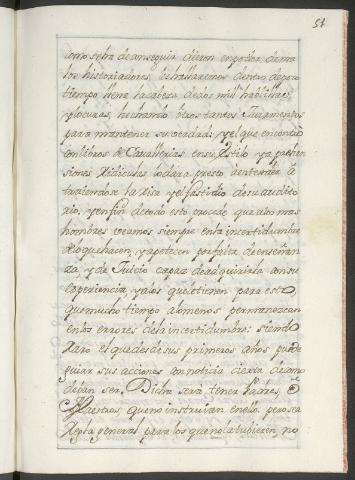 51
como se ha de conseguir dieron en poder de ma
los historiadores, les hallaremos dentro de poco
tiempo llena la cabeza de dos mil hablillas
y locuras, hechando otros tantos Juramentos
para mantener su verdad: y el que encontró
con libros de Cavallerias en su Estilo y aprehen
siones Ridiculas lo dara presto a entender
la Risa y el fastidio de su audito
rio: y en fin de todo esto procede que a los mas
hombres veamos siempre en la incertidumbre
de lo que hacen, y apetecen por falta de enseñan
za, y de Juicio capaz de adquirirla con su
experiencia, y a los que le tienen para esto
que mucho tiempo a lo menos permanezcan
en los errores de la incertidumbre: siendo
Raro el que desde sus primeros años puede
guiar sus acciones con noticia cierta de como
deban ser. Dicha será tener Padres, ó
Maestros, que nos instruian en ello, pero sea
Regla general para los que no la tubieren, no